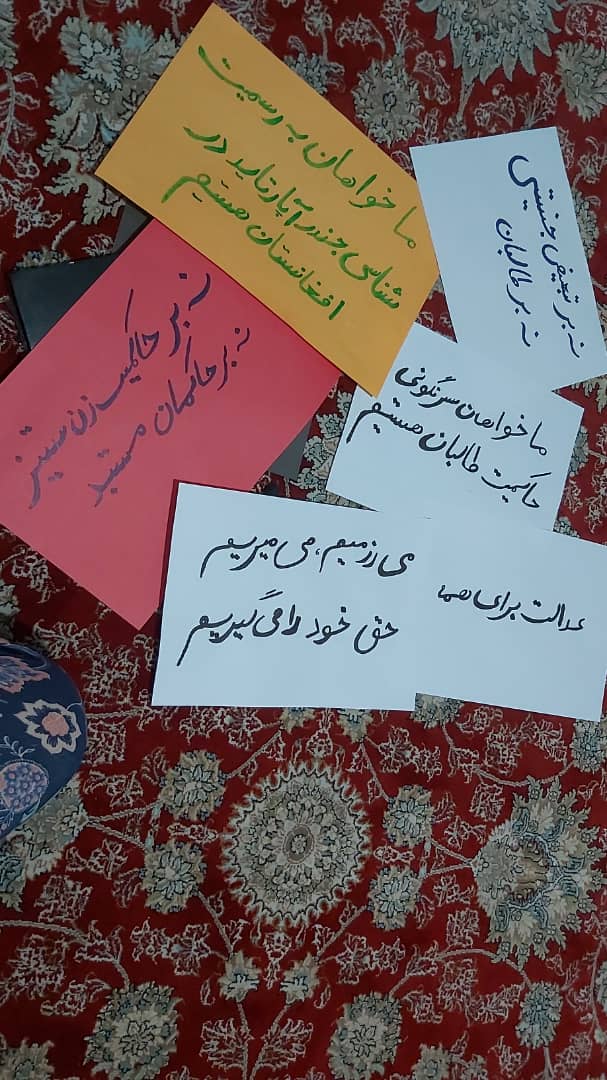 ما خواهان به رسمیت
شناسی جندر آپارتاید در
افغانستان هستیم
نه بر تبعیض جنسیتی
نه بر طالبان
نه بر حاکمیت زن ستیز
نه بر حاکمان مستبد
ما خواهان سرنگونی
حاکمیت طالبان هستیم
می رزمیم، می میریم
حق خود را می گیریم
عدالت برای هما